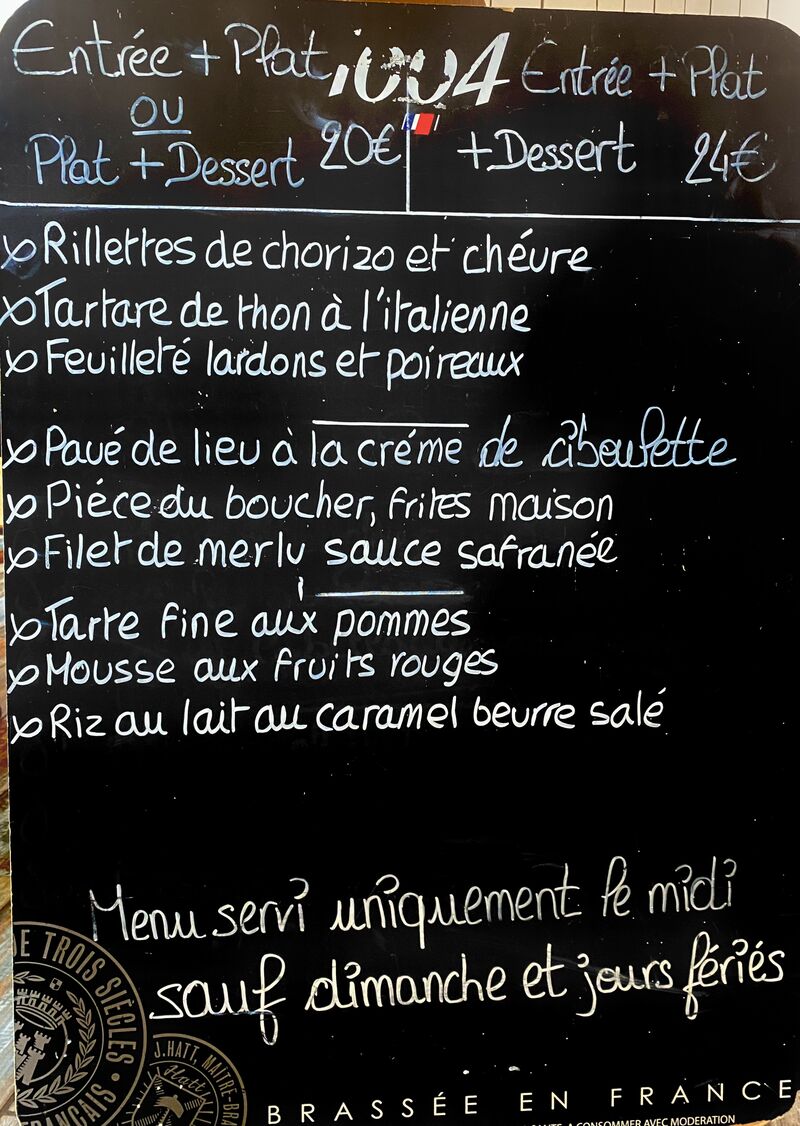 Entrée + Plat
ou
Plat + Dessert 20€
Entrée + Plat
+ Dessert 24€
Rillettes de chorizo et chévre
Tartare de thon à l'italienne
Feuilleté lardons et poireaux
Pavé de lieu à la créme de ciboulette
Piéce du boucher, frites maison
Filet de merlu sauce safranée
Tarte fine aux pommes
Mousse aux fruits rouges
Riz au lait au caramel beurre salé
Menu servi uniquement le midi
sauf dimanche et jours fériés
DE TROIS SIÈCLES
FRANÇAIS
J.HATT, MAITRE-BRA
Hatt
BRASSÉE EN FRANCE
A CONSOMMER AVEC MODERATION